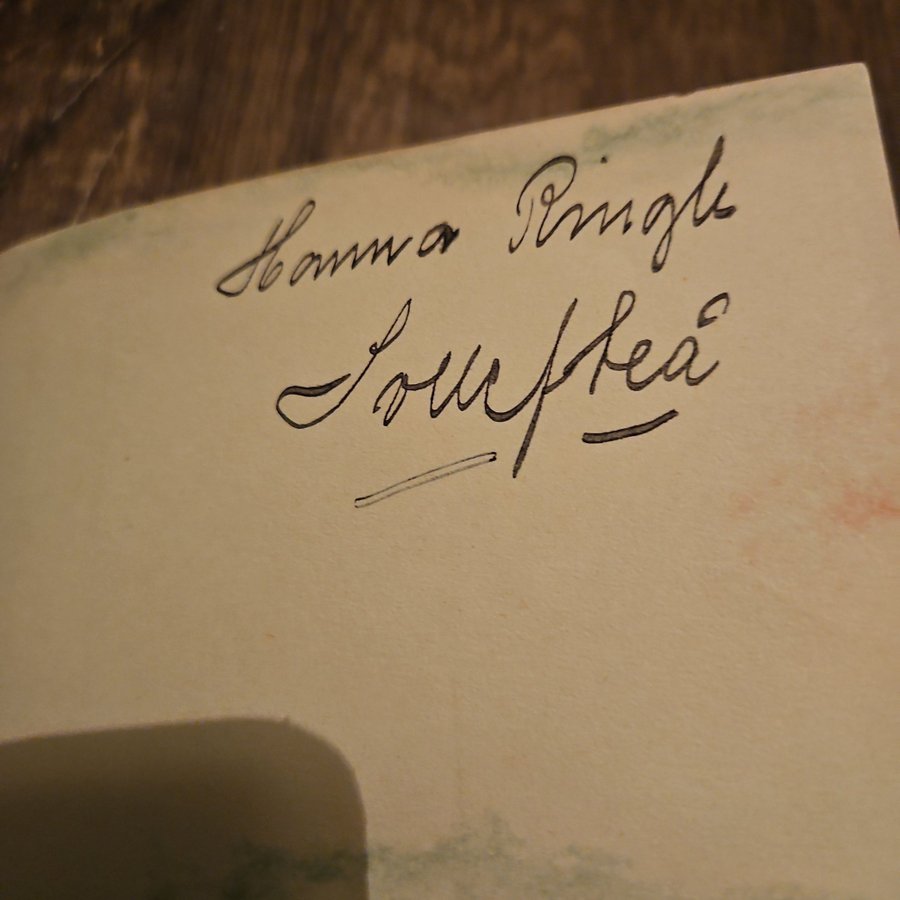 Hanna Ringh
Sollefteå